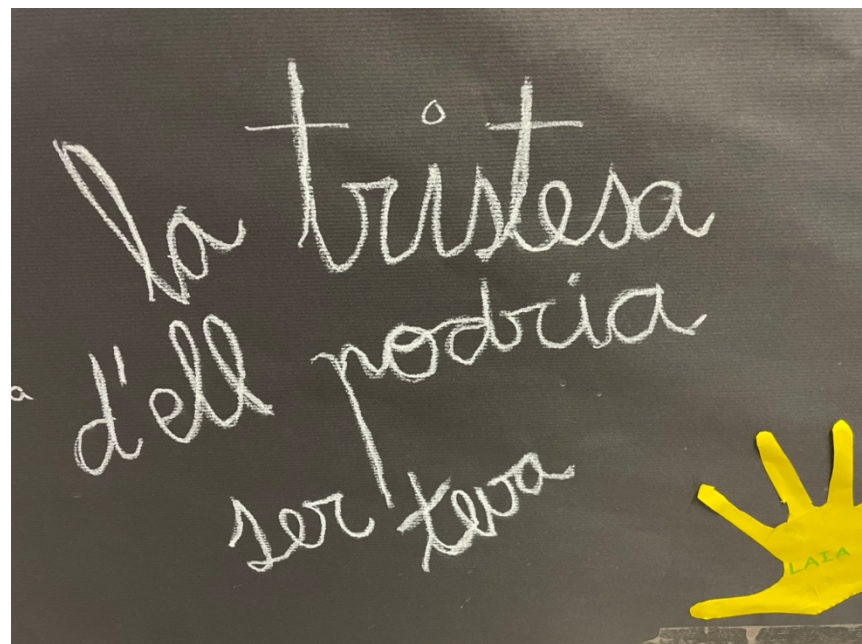 la tristesa
d'ell podria
ser teva
a
LAIA